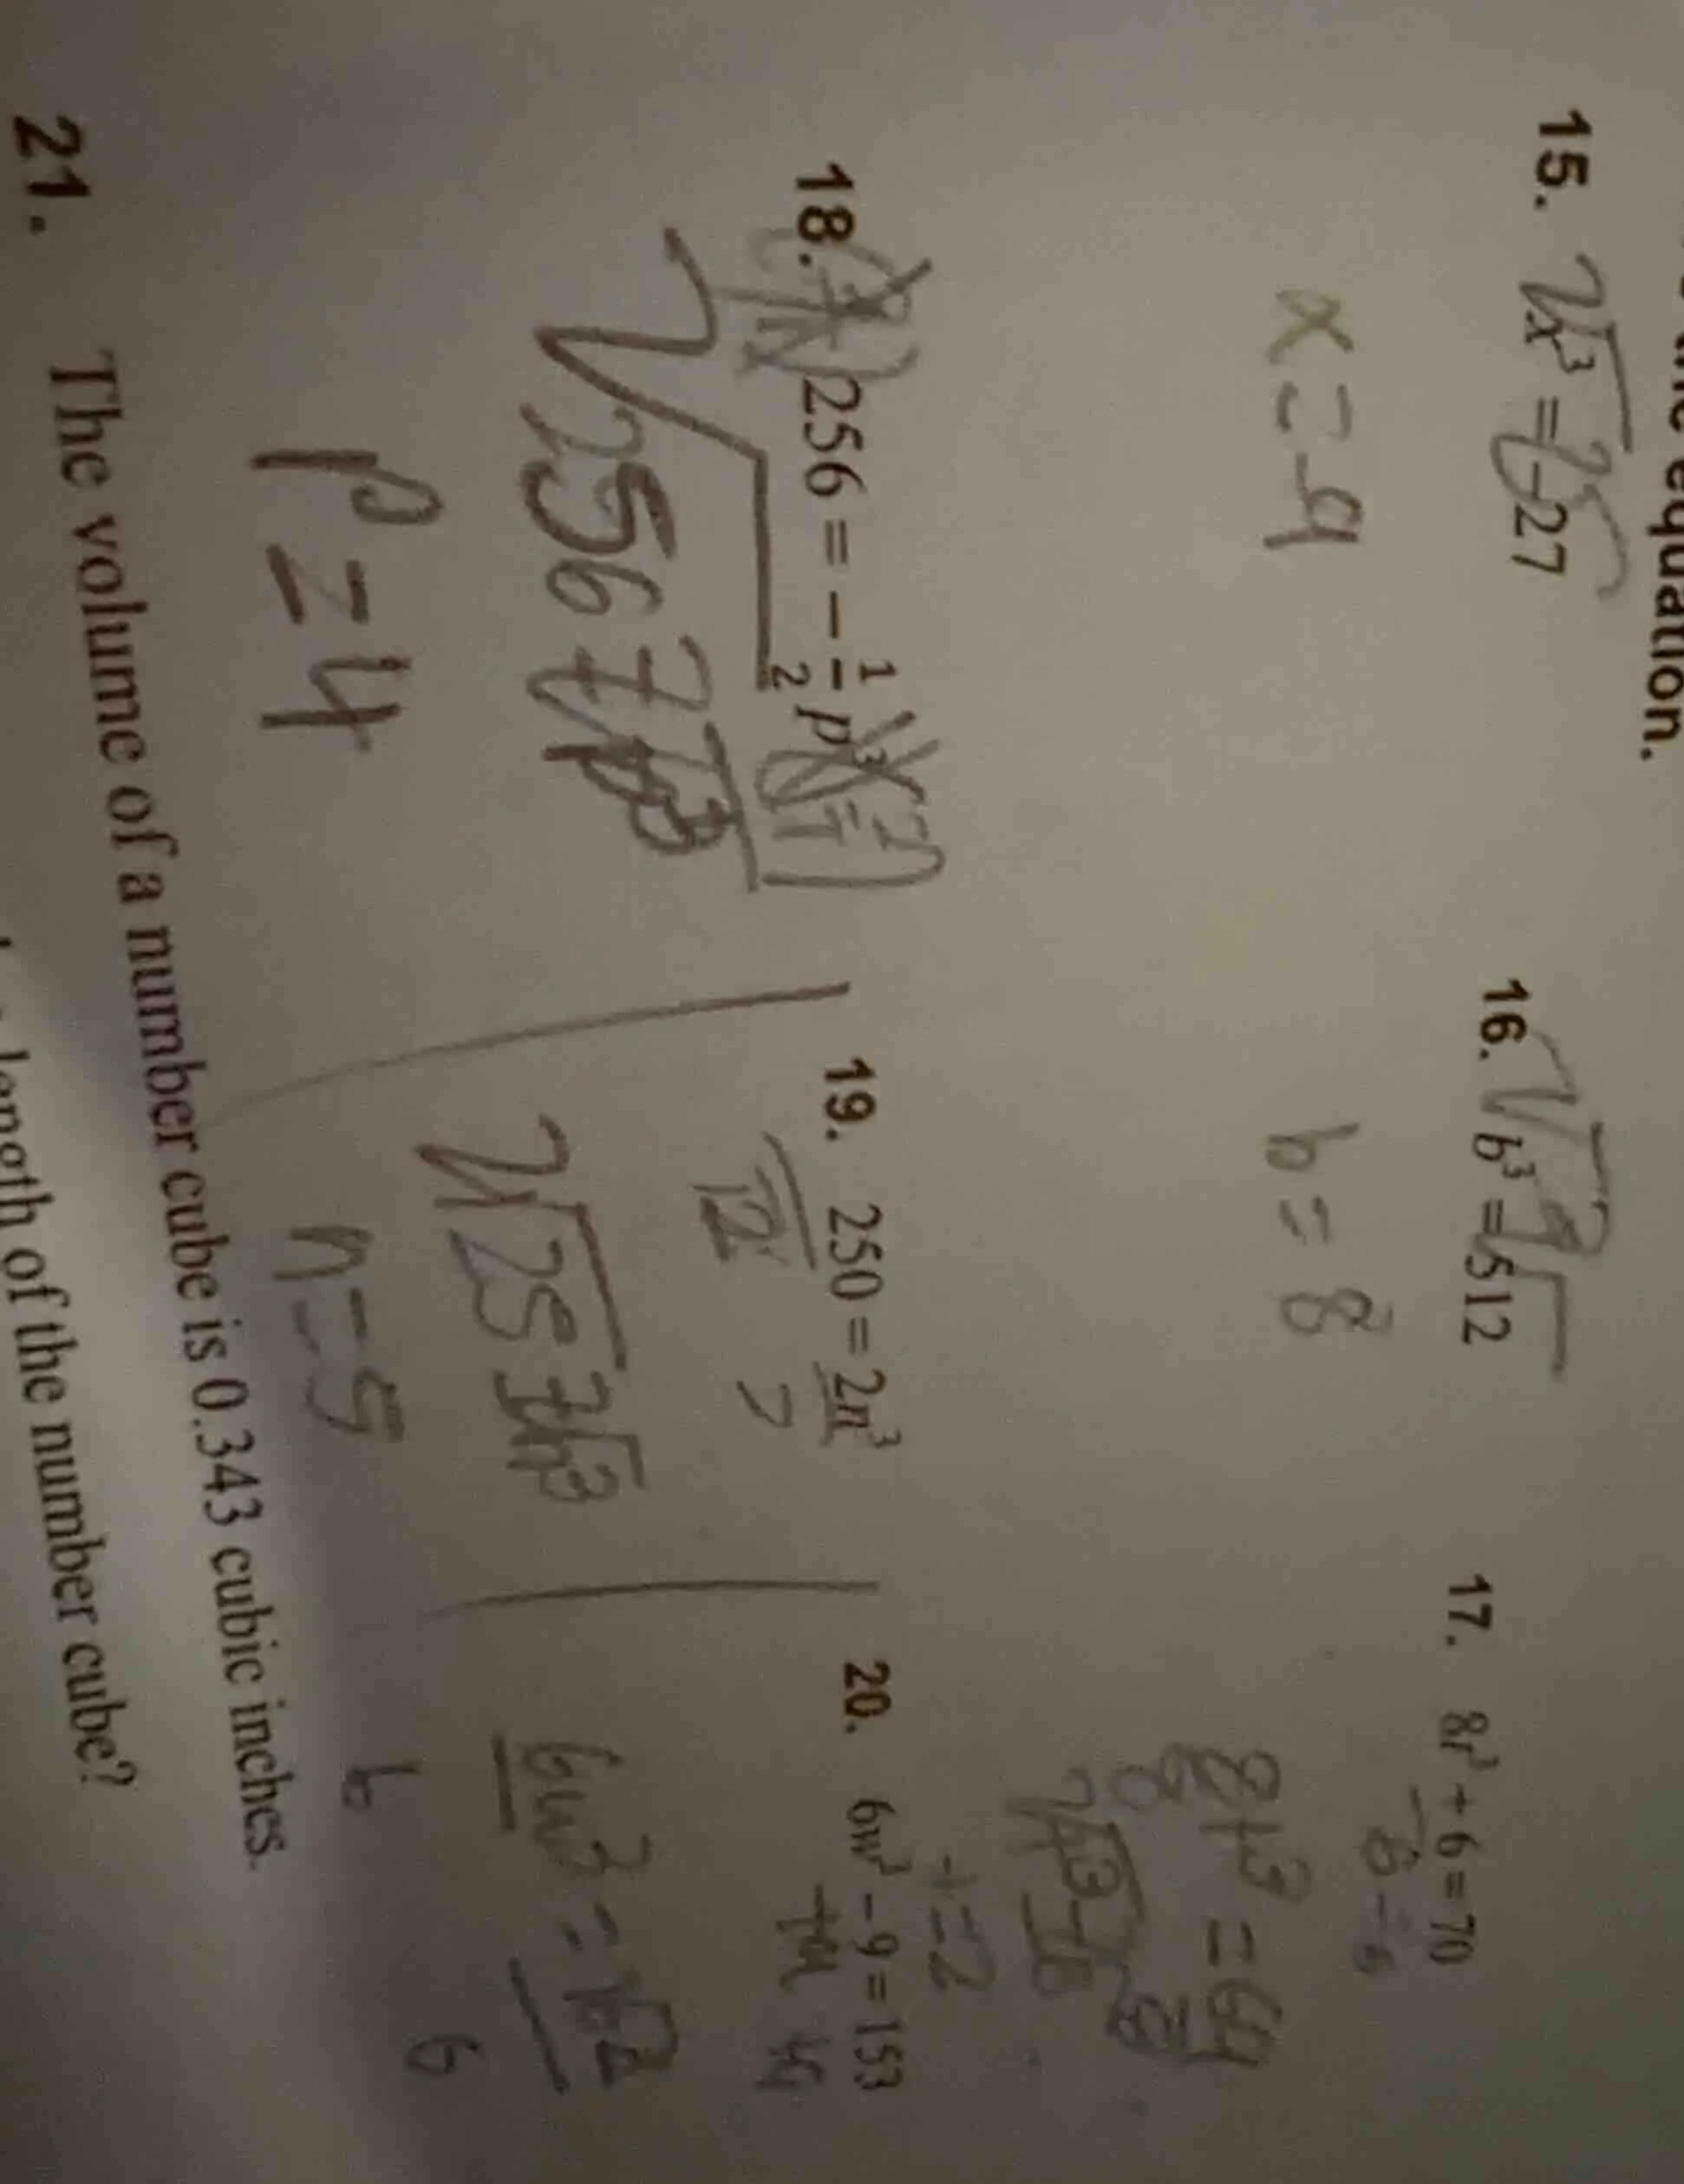 equation.
15. x³ = -27
x = -9
16. b³ = 512
b = 8
17. 8t³ + 6 = 70
-6 -6
8t³ = 64
8 8
t = 2
18. 256 = -1/2 p³
√256 =
p = 4
19. 250 = 2n³
2
n = 5
20. 6w³ - 9 = 153
6w³ = 162
6 6
21. The volume of a number cube is 0.343 cubic inches.
length of the number cube?